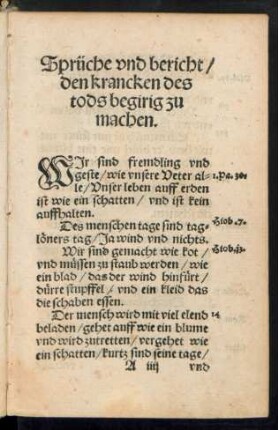 Sprüche vnd bericht /
den krancken des
tods begirig zu
machen.
WIr sind fremdling vnd
geste / wie vnsere Veter al- 1. Pa. 30.
le / Vnser leben auff erden
ist wie ein schatten / vnd ist kein
auffhalten.
Des menschen tage sind tag- Hiob .7.
löners tag / Ja wind vnd nichts.
Wir sind gemacht wie kot / Hiob.13.
vnd müssen zu staub werden / wie
ein blad / das der wind hinfürt /
dürre stupffel / vnd ein kleid das
die schaben essen.
Der mensch wird mit viel elend 14
beladen / gehet auff wie ein blume
vnd wird zutretten / vergehet wie
ein schatten / kurtz sind seine tage /
A iiij vnd